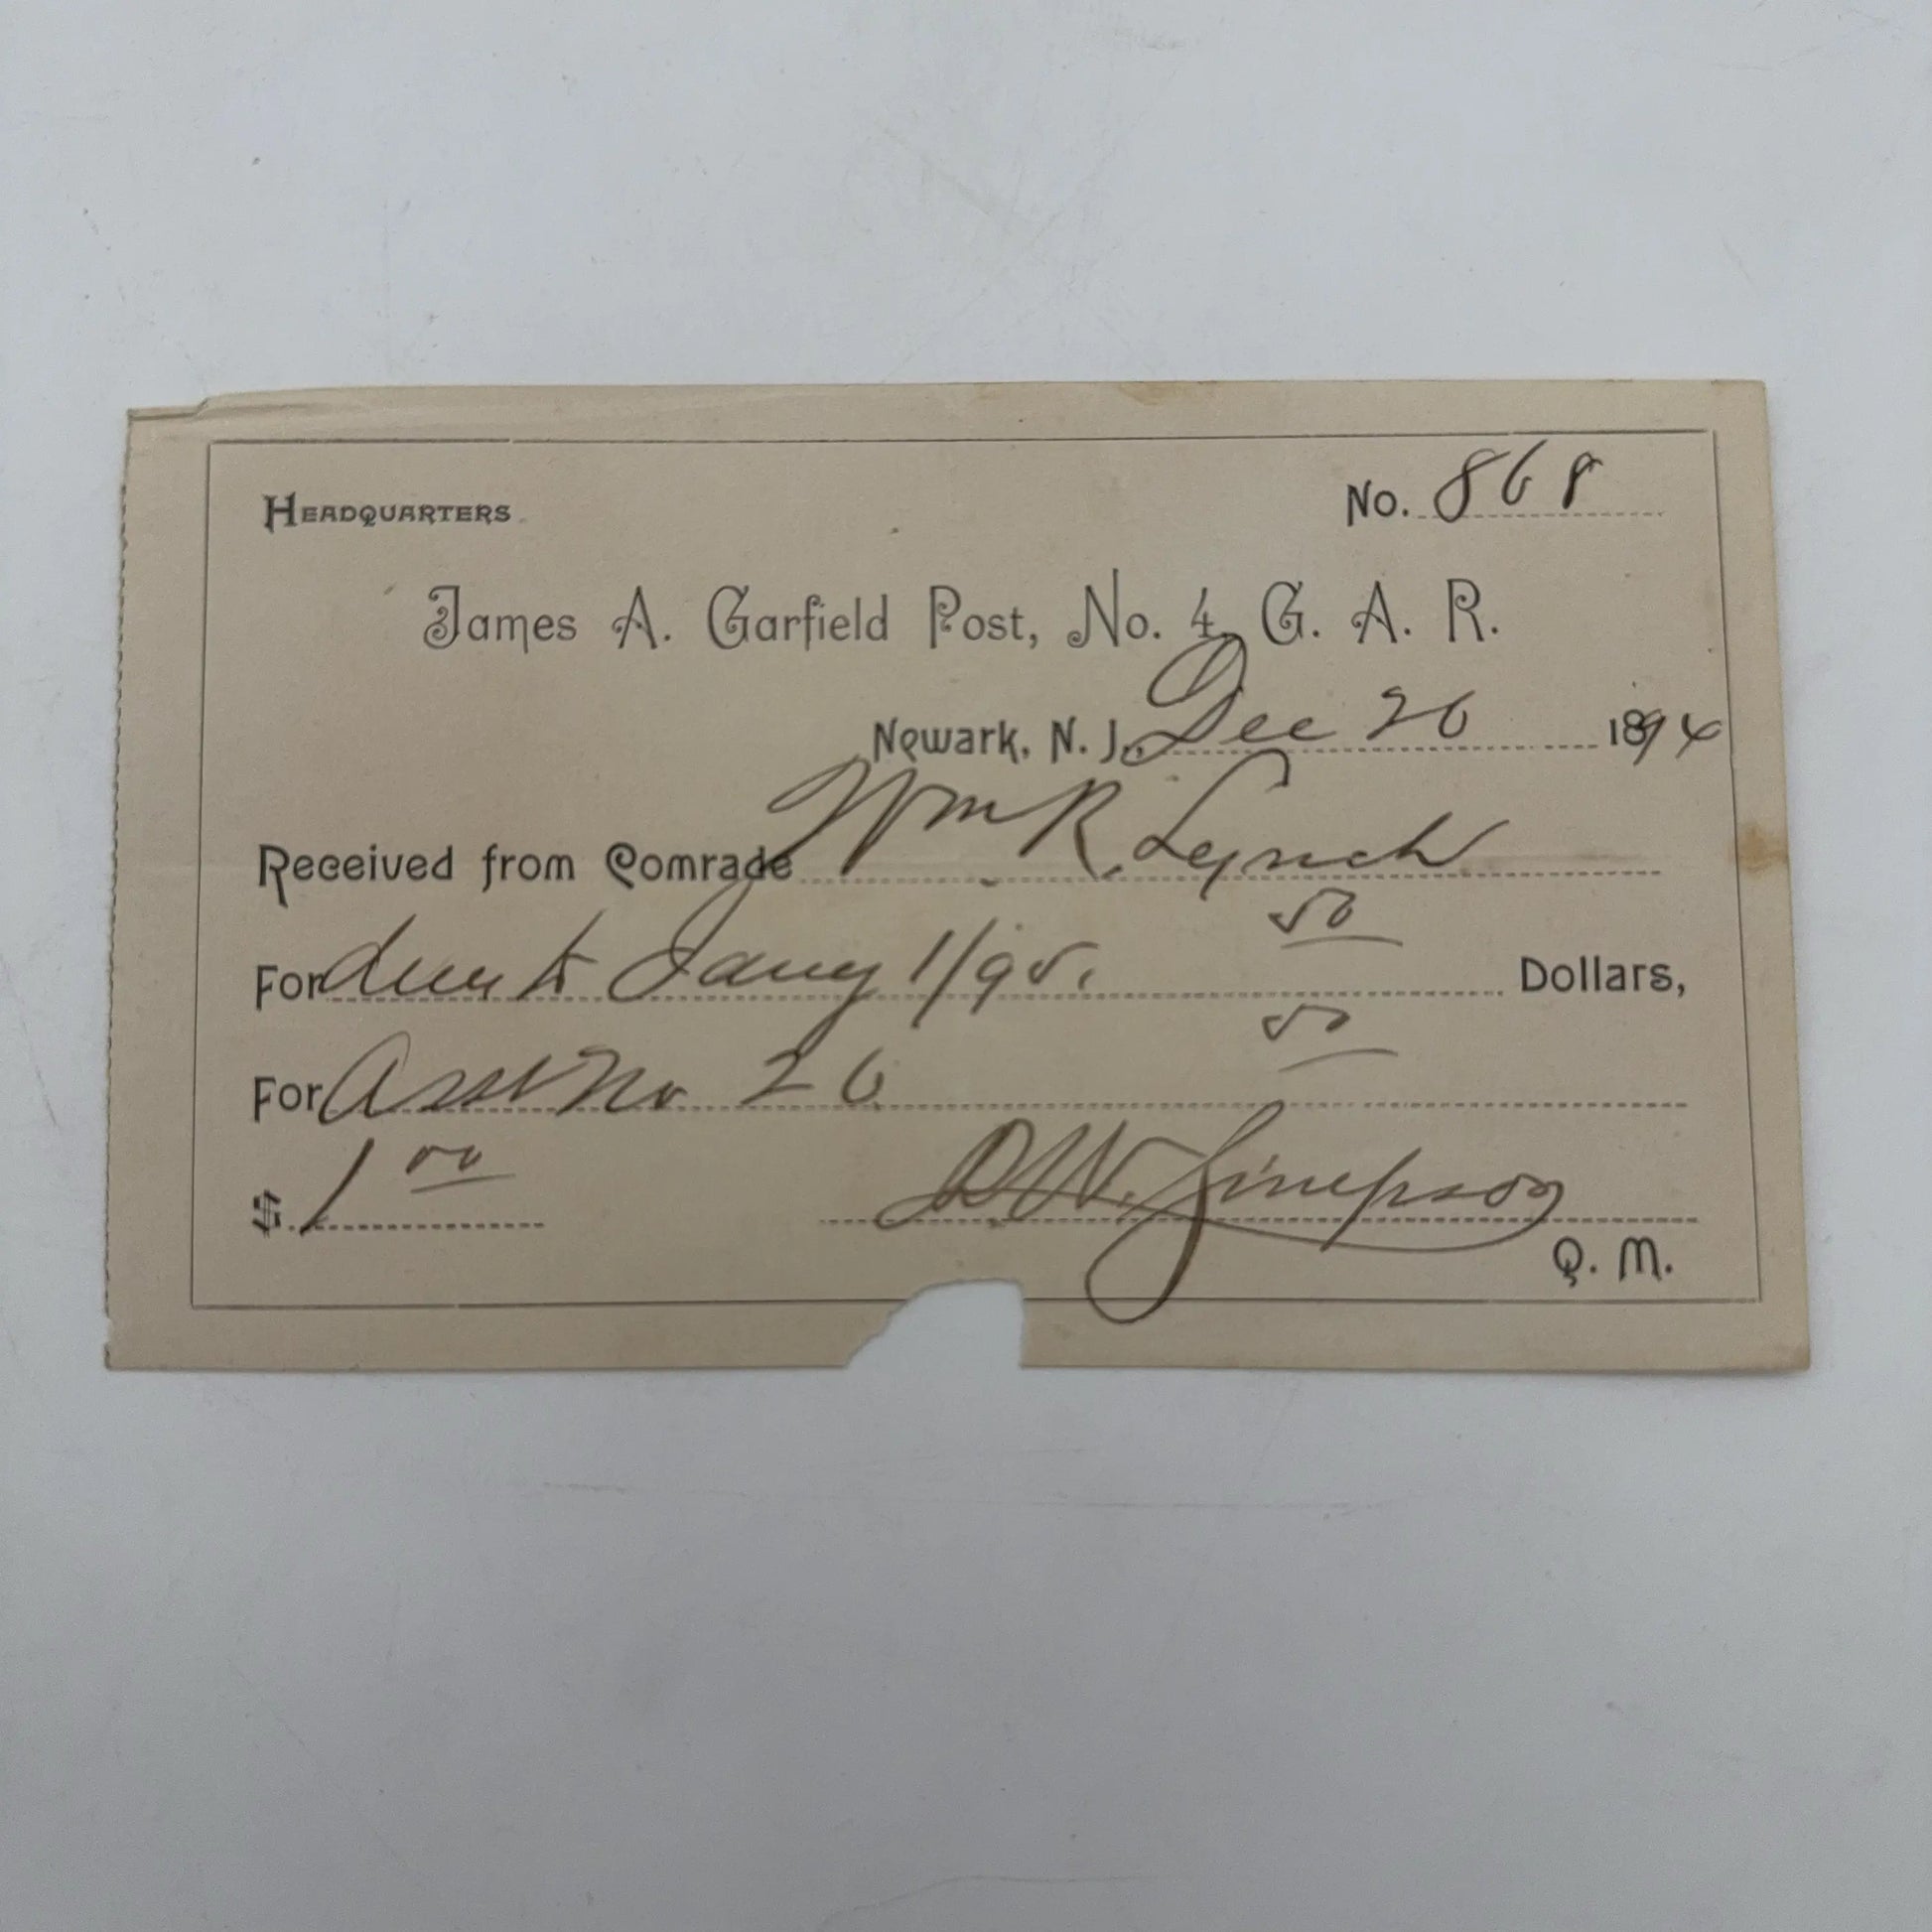 HEADQUARTERS No. 868
James A. Garfield Post, No. 4, G. A. R.
Newark, N. J., Dec 26 1894
Received from Comrade Wm R. Lynch
50
For dues to Jany 1/95. Dollars,
50
For Asst No 26
$ 1 00 D W. Simpson
Q. M.